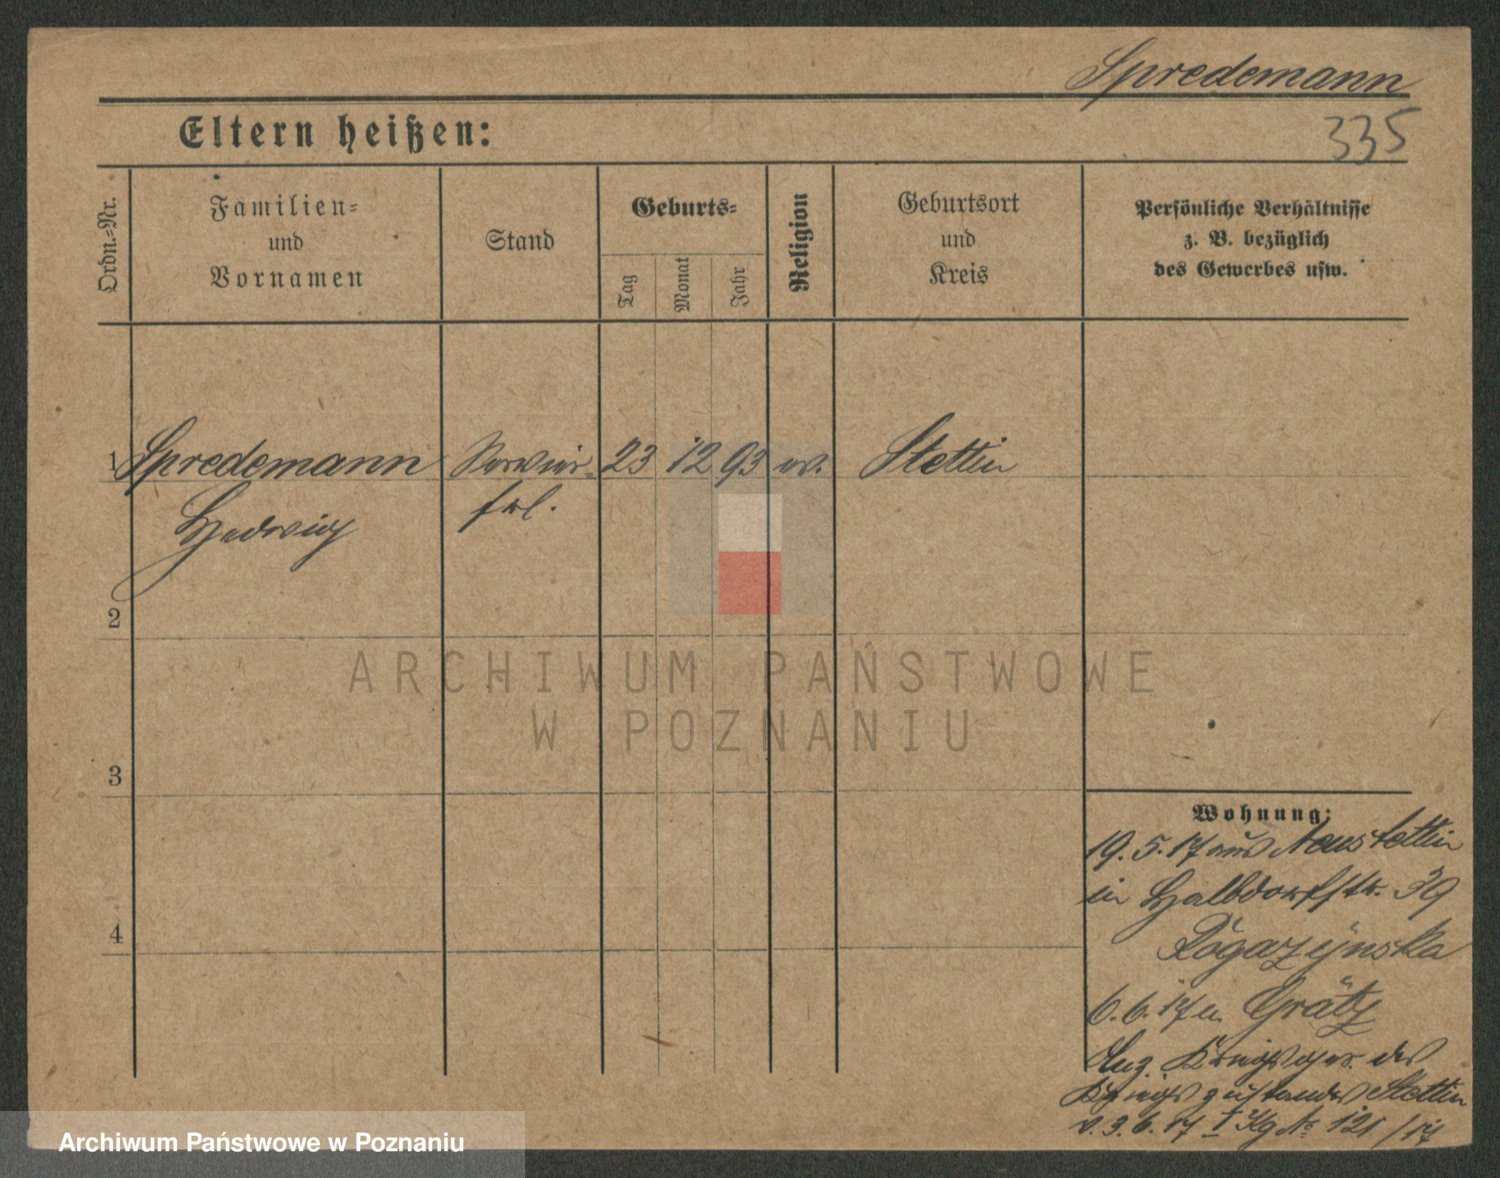 Spredemann
335
Eltern heißen:
Ordn.-Nr.
Familien-
und
Vornamen
Stand
Geburts-
Tag
Monat
Jahr
Religion
Geburtsort
und
Kreis
Persönliche Verhältnisse
z. B. bezüglich
des Gewerbes usw.
1 Spredemann Servier- 23 12 93 ev. Stettin
Hedwig frl.
2
3
4
Wohnung:
19. 5. 17 aus Neustettin
in Halbdorfstr. 39
6. 6. 17 n. Grätz
des
Stettin
v. 3. 6. 17 No 121/17
ARCHIWUM PAŃSTWOWE
W POZNANIU
Archiwum Państwowe w Poznaniu